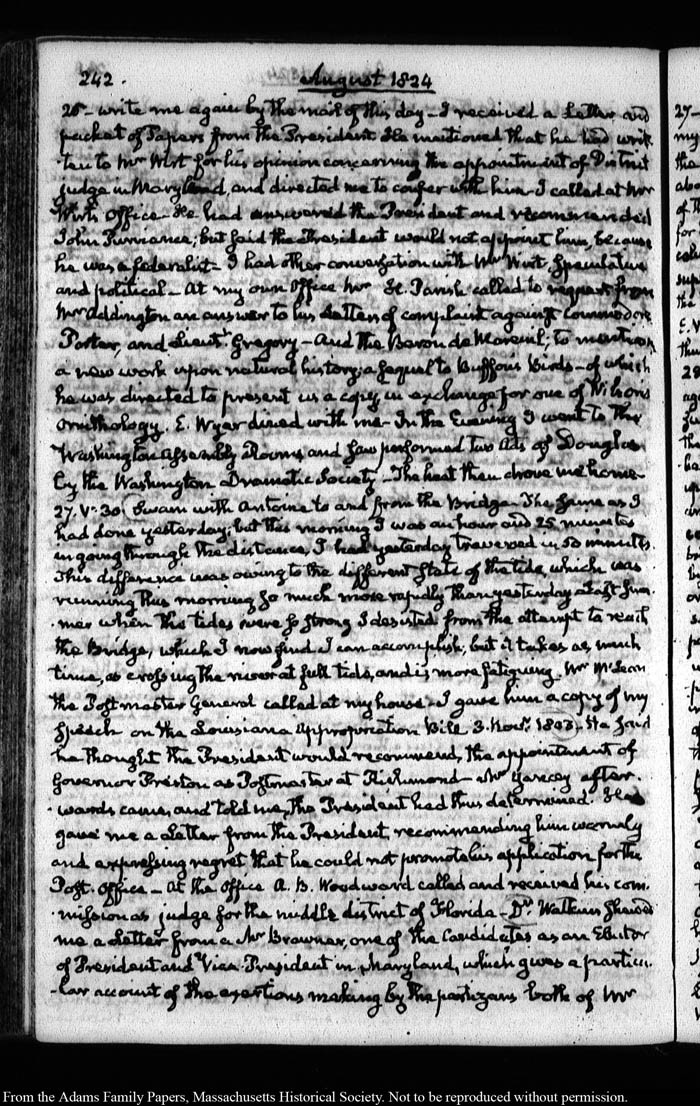 242.
August 1824
26- write me again by the mail of this day - I received a Letter and
packet of Papers from the President. He mentioned that he had writ-
ten to Mr Wirt for his opinion concerning the appointment of District
judge in Maryland, and directed me to confer with him - I called at Mr
Wirt's Office - He had answered the President and recommended
John Purviance; but said the President would not appoint him, because
he was a federalist - I had other conversation with Mr Wirt, speculative
and political - At my own Office Mr H. Parish called to request from
Mr Addington an answer to his Letter of complaint against Commodore
Porter, and Lieutt Gregory - And the Baron de Mareuil; to mention
a new work upon natural history; a sequel to Buffon's Birds - of which
he was directed to present us a copy in exchange for one of Wilson's
Ornithology. E. Wyer dined with me - In the Evening I went to the
Washington Assembly Rooms and saw performed two Acts of Douglas
by the Washington Dramatic Society - The heat then drove me home.
27. V:30 Swam with Antoine to and from the Bridge - The same as I
had done yesterday; but this morning I was an hour and 25 minutes
in going through the distance, I had yesterday traversed in 50 minutes.
This difference was owing to the different state of the tide, which was
running this morning so much more rapidly than yesterday - Last Sum-
mer when the tides were so strong I desisted from the attempt to reach
the Bridge, which I now find I can accomplish, but it takes as much
time, as crossing the river at full tide, and is more fatiguing. Mr McLean
the Postmaster General called at my house - I gave him a copy of my
Speech on the Louisiana Appropriation Bill 3. Novr 1803. He said
he thought the President would recommend, the appointment of
Governor Preston as Postmaster at Richmond - Mr after-
wards came, and told me, the President had thus determined. He
gave me a Letter from the President, recommending him warmly
and expressing regret that he could not promote his application for the
Post-Office - At the Office A. B. Woodward called and received his com-
mission as judge for the middle district of Florida - Dr Watkins shewed
me a Letter from a Mr Brawner, one of the Candidates as an Elector
of President and Vice-President in Maryland, which gives a particu-
lar account of the exertions making by the partizans both of Mr
27-
From the Adams Family Papers, Massachusetts Historical Society. Not to be reproduced without permission.